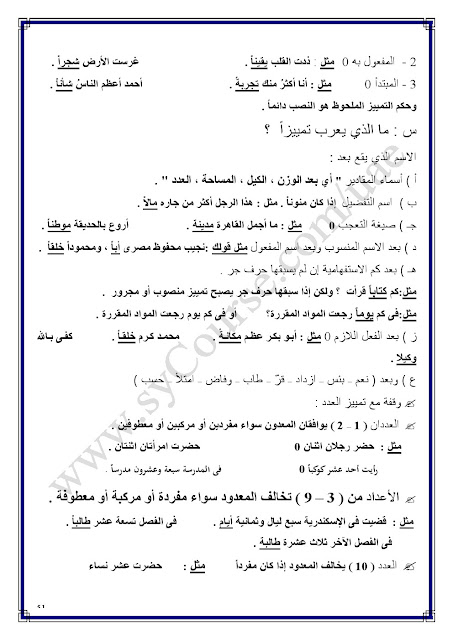 2 - المفعول به 0 مثل : زدت القلب يقيناً . غرست الأرض شجراً .
3 - المبتدأ 0 مثل : أنا أكثر منك تجربةً . أحمد أعظم الناسُ شأناً .
وحكم التمييز الملحوظ هو النصب دائماً .
س : ما الذي يعرب تمييزاً ؟
الاسم الذي يقع بعد :
أ ) أسماء المقادير " أي بعد الوزن ، الكيل ، المساحة ، العدد " .
ب ) اسم التفضيل إذا كان منوناً . مثل : هذا الرجل أكثر من جاره مالاً .
جـ ) صيغة التعجب 0 مثل : ما أجمل القاهرة مدينة . أروع بالحديقة موطناً .
د ) بعد الاسم المنسوب وبعد اسم المفعول مثل قولك :نجيب محفوظ مصرى أباً ، ومحموداً خلقاً .
هـ ) بعد كم الاستفهامية إن لم يسبقها حرف جر .
مثل:كم كتاباً قرأت ؟ ولكن إذا سبقها حرف جر يصبح تمييز منصوب أو مجرور .
مثل:فى كم يوماً رجعت المواد المقررة؟ أو فى كم يوم رجعت المواد المقررة .
ز ) بعد الفعل اللازم 0 مثل : أبو بكر عظم مكانةً . محمد كرم خلقاً . كفى بالله
وكيلا .
ع ) وبعد ( نعم – بئس – ازداد – قرّ – طاب – وفاض – امتلأ – حسب )
وقفة مع تمييز العدد :
العددان ( 1 – 2 ) يوافقان المعدون سواء مفردين أو مركبين أو معطوفين .
مثل : حضر رجلان اثنان 0 حضرت امرأتان اثنتان .
رأيت أحد عشر كوكباً 0 فى المدرسة سبعة وعشرون مدرساً .
الأعداد من ( 3 – 9 ) تخالف المعدود سواء مفردة أو مركبة أو معطوفة .
مثل : قضيت فى الإسكندرية سبع ليال وثمانية أيام . فى الفصل تسعة عشر طالباً .
فى الفصل الآخر ثلاث عشرة طالبة .
العدد ( 10 ) يخالف المعدود إذا كان مفرداً مثل : حضرت عشر نساء
www.syCourse.com/une